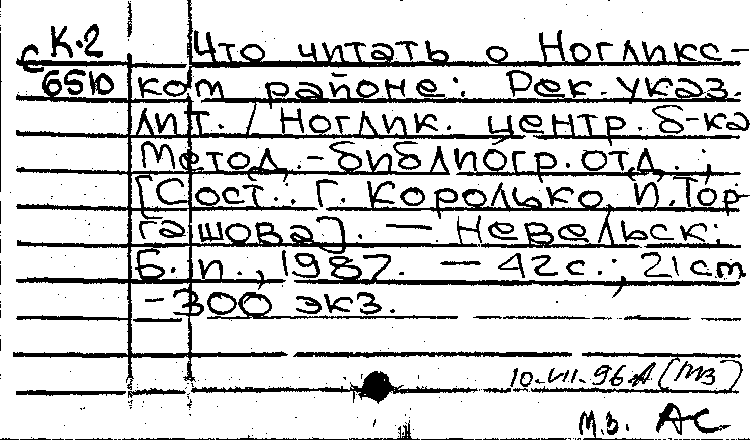 К.2 Что читать о Ногликс-
С 6510 ком районе: Рек. указ.
лит. / Ноглик. центр. б-ка
Метод.-библиогр. отд. ;
[Сост.: Г. Королько, И. Тор
гашова]. — Невельск:
Б. и., 1987. — 42 с. ; 21 cm
-300 экз.
10.VII.96 А (МЗ)
М.З. АС